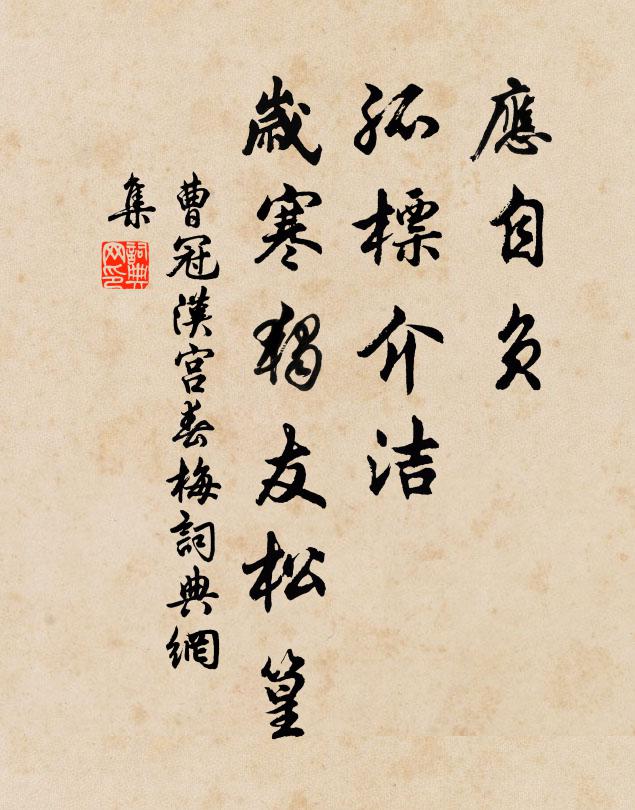 應自負
孤標介洁
歲寒獨友松篁
曹冠漢宮春梅詞典網
集
詞典網印